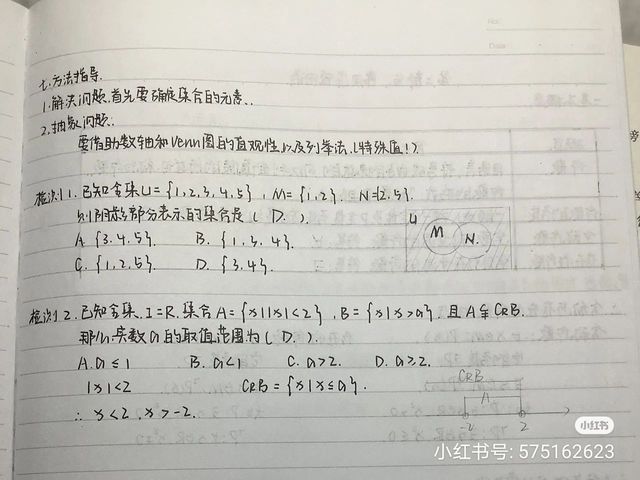 No:
Date
七.方法指导.
1.解决问题.首先要确底集合的元素..
2.抽象问题.
要借助数轴和Venn图的直观性,以及列举法.(特殊值!).
检测1.已知全集U={1,2,3,4,5},M={1,2}. N={2.5}.
则阴影部分表示的集合是(D.).
A.{3.4.5}. B.{1,3,4}.
C.{1,2,5}. D.{3,4}.
U
M
N.
检测2.已知全集.I=R.集合A={x||x|<2},B={x|x>a}.且A⫋CRB.
那么实数a的取值范围为(D.).
A.a≤1 B.a<1 C.a>2. D.a≥2.
|x|<2 CRB={x|x≤a}.
∴x<2,x>-2.
CRB
A
-2 2
小红书
小红书号: 575162623